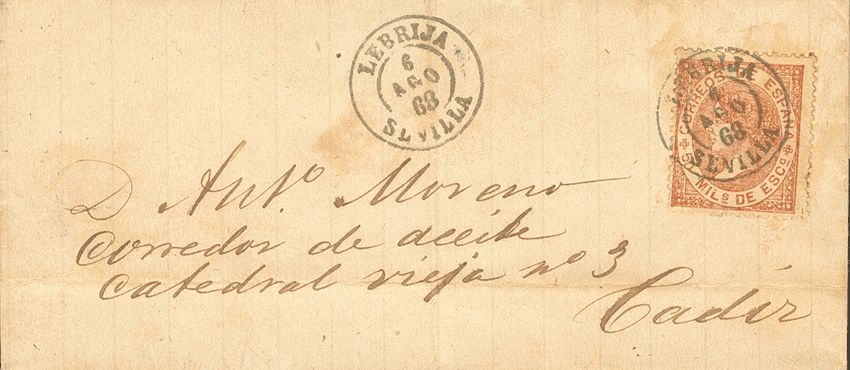 LEBRIJA
6
AGO
68
SEVILLA
LEBRIJA
6
AGO
68
SEVILLA
CORREOS ESPAÑA
MILS DE ESCO
D Anto Moreno
Corredor de aceite
Catedral vieja no 3
Cadiz